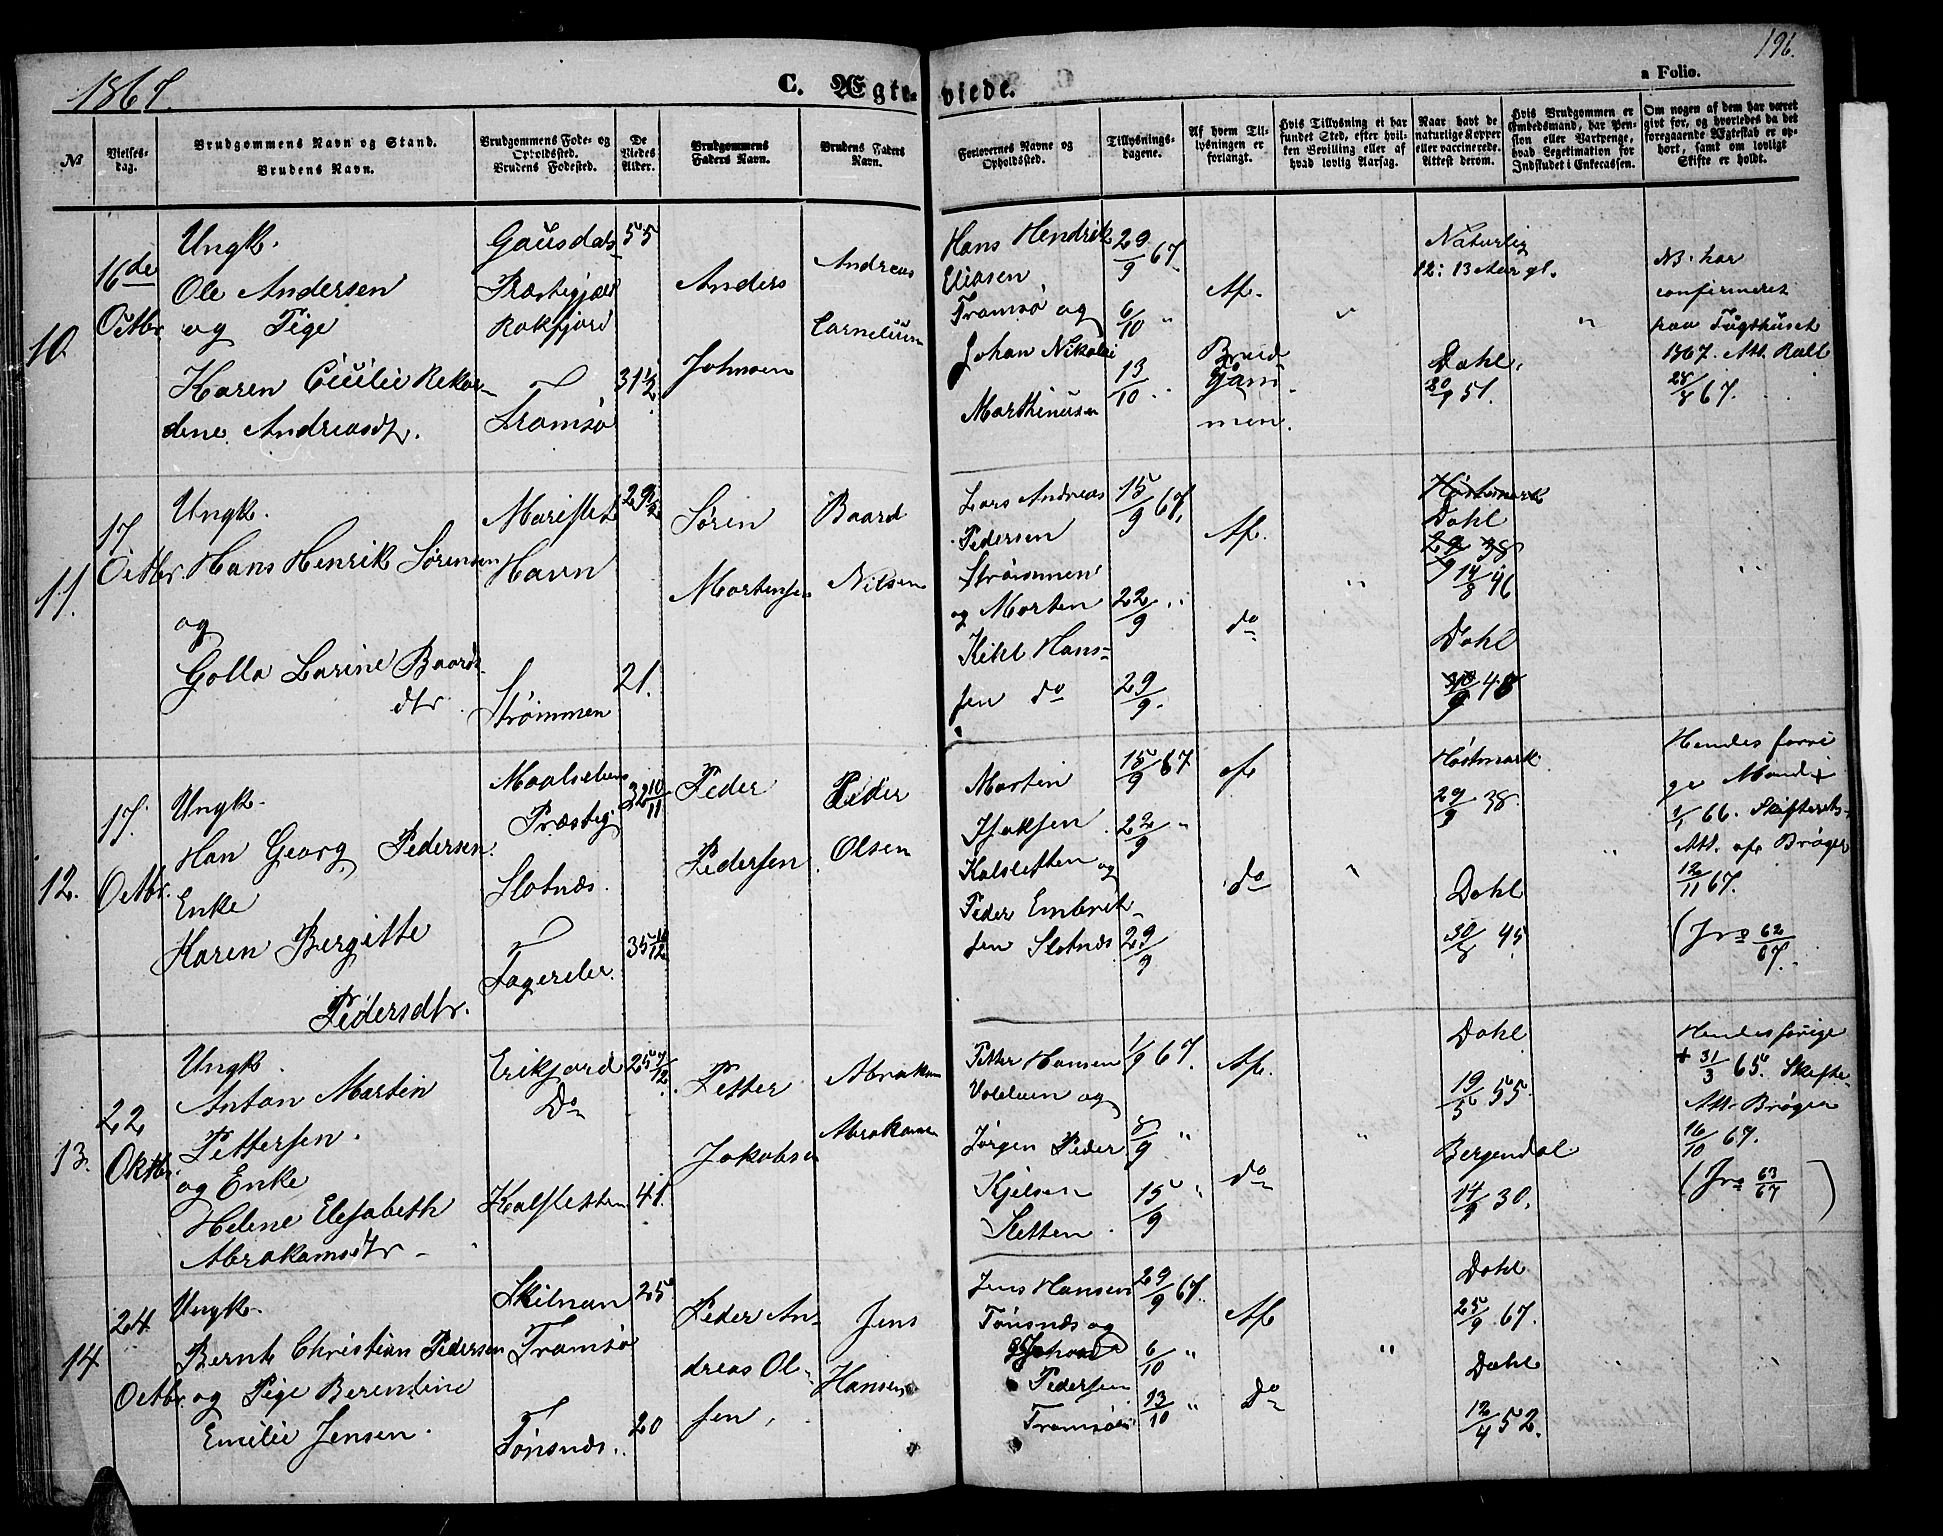 1867.
C. Ægte-
viede.
196.
a Folio.
№
Vielses-
dag.
Brudgommens Navn og Stand.
Brudens Navn.
Brudgommens Føde- og
Opholdssted.
Brudens Fødested.
De
Viedes
Alder.
Brudgommens
Faders Navn.
Brudens Faders
Navn.
Forlovernes Navne og
Opholdssted.
Tillysnings-
dagene.
Af hvem Til-
lysningen er
forlangt.
Hvis Tillysning ei har
fundet Sted, efter hvil-
ken Bevilling eller af
hvad lovlig Aarsag.
Naar havt de
naturlige Kopper
eller vaccinerede.
Attest derom.
Hvis Brudgommen er
Embedsmand, har Pen-
sion eller Vartpenge,
hvad Legitimation for
Indskudet i Enkecassen.
Om nogen af dem har været
givt før, og hvorledes da det
foregaaende Ægteskab er op-
hørt, samt om lovligt
Skifte er holdt.
10.
16de
Octbr.
Ungk.
Ole Andersen
og Pige
Karen Cecilie Rekar-
dine Andreasdtr.
Gausdals
Præstegjæld
Tromsø
55
31 1/2
Anders
Johnsen
Andreas
Cornelius
Hans Hendrik
Eliasen
Tromsø og
Johan Nikolai
Marthinusen
29/9 67.
6/10 "
13/10 "
Af.
Brud
gom
men.
"
Naturlig
12: 13 Aar gl.
Dahl.
20/9 51.
"
NB. har
confirmeret
paa Tugthuset
1867. Att.
28/8 67.
11.
17
Octbr.
Ungk.
Hans Henrik Sørensen
og
Golla Larine Baards
dtr
Havn
Strømmen
29
21.
Søren
Mortensen
Baard
Nilsen
Lars Andreas
Pedersen
Strømmen
og Morten
Kihl Hans-
sen do
15/9 67.
22/9 "
29/9.
Af.
do
"
Høstmark
Dahl
29/9 38
14/8 46
Dahl
48
"
12.
17.
Octbr.
Ungk.
Han Georg Pedersen
Enke
Karen Bergitte
Pedersdtr.
Maalselvens
Præsteg
Slotnæs.
Fagereler.
32 10/11
35 10/12
Peder
Pedersen
Peder
Olsen
Morten
Isaksen
Kalsletten og
Peder Embrik-
sen Slotnæs
15/9 67
22/9 "
29/9
af
do
"
Høstmark
29/9 38.
Dahl
30/8 45.
"
Hendes forri
ge Mand +
1/1 66. Skifterets
Att. af Brøger
12/11 67.
(Jno 62/67.
13.
22
Oktbr.
Ungk.
Anton Martin
Pettersen.
og Enke
Helene Elisabeth
Abrahamsdtr
Erikjord
Do
Kalsletten
25 7/12
41.
Petter
Jakobsen
Abraham
Abrahamsen
Petter Hansen
og
Jørgen Peder
Kjelsen
Sletten
1/9 67.
8/9 "
15/9 "
Af.
do
"
Dahl
19/5 55.
Bergendal
14/9 30.
Hendes forige
+ 31/3 65. Skifte-
Att. Brøger
16/10 67.
(Jno 63/67)
14
24.
Octbr.
Ungk.
Bernt Christian Pedersen
og Pige Berentine
Emilie Jensen.
Tromsø
Tønsnæs.
25
20
Peder An-
dreas Ol-
sen,
Jens
Hansen
Jens Hansen
Tønsnæs og
Pedersen
Tromsøen
29/9 67.
6/10 "
13/10 "
Af
Do
"
Dahl
25/9 67.
Dahl
12/4 52.